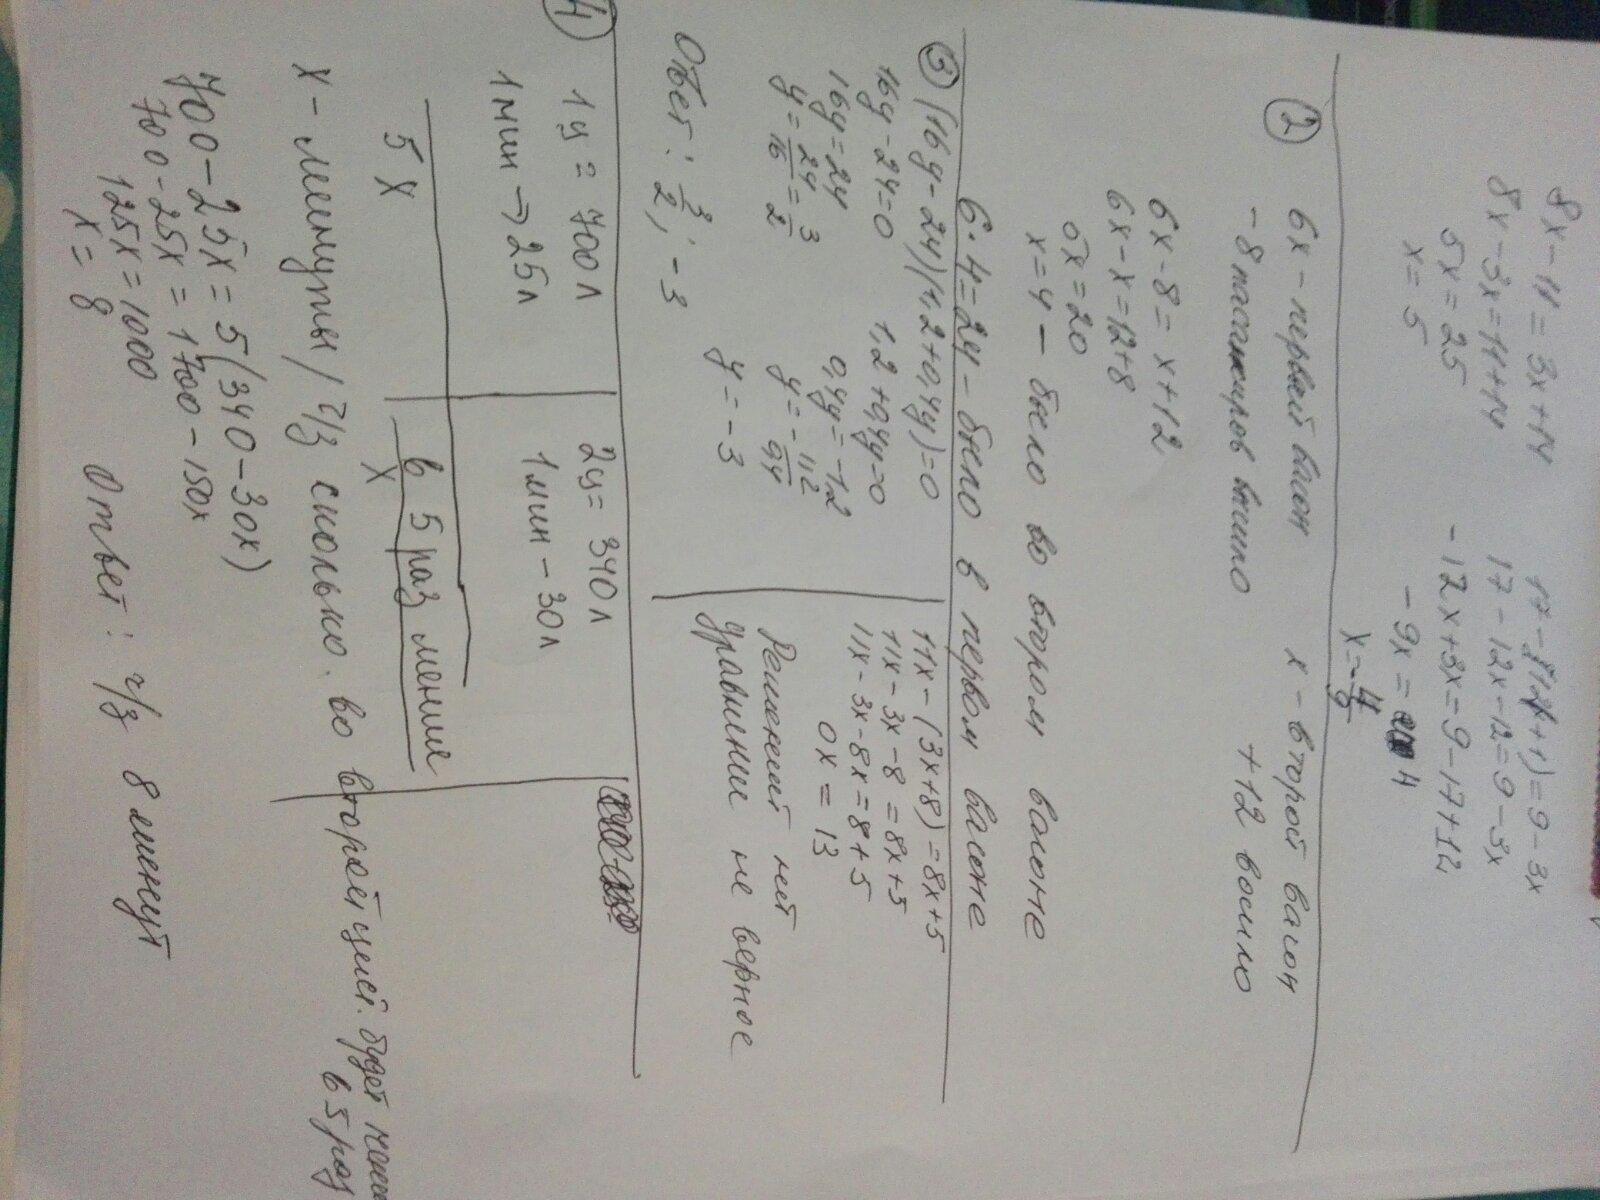 8x - 11 = 3x + 14
8x - 3x = 11 + 14
5x = 25
x = 5
17 - 12(x+1) = 9 - 3x
17 - 12x - 12 = 9 - 3x
-12x + 3x = 9 - 17 + 12
-9x = 4
x = -4/9
② 6x - первый вагон x - второй вагон
- 8 пассажиров вышло +12 вошло
6x - 8 = x + 12
6x - x = 12 + 8
5x = 20
x = 4 - было во втором вагоне
6·4 = 24 - было в первом вагоне
③ (16y - 24)(1,2 + 0,4y) = 0
16y - 24 = 0 1,2 + 0,4y = 0
16y = 24 0,4y = -1,2
y = 24/16 = 3/2 y = -1,2/0,4
y = -3
Ответ: 3/2; -3
11x - (3x + 8) = 8x + 5
11x - 3x - 8 = 8x + 5
11x - 3x - 8x = 8 + 5
0x = 13
Решений нет
Уравнение не верное
4 1ц = 700 л 2ц = 340 л
1 мин → 25 л 1 мин - 30 л
в 5 раз меньше
5x x
x - минуты / ч/з сколько во второй цист. будет
в 5 раз
700 - 25x = 5(340 - 30x)
700 - 25x = 1700 - 150x
125x = 1000
x = 8
Ответ: ч/з 8 минут